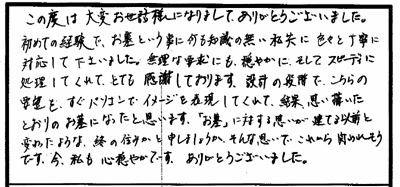 この度は大変お世話様になりまして、ありがとうございました。
初めての経験で、お墓という事に何も知識の無い私共に色々と丁寧に
対応して下さいました。無理な要求にも、穏やかに、そしてスピーディに
処理してくれて、とても感謝しております。設計の段階で、こちらの
希望を、すぐパソコンでイメージを表現してくれて、結果、思い描いた
とおりのお墓になったと思います。「お墓」に対する思いが建てる以前と
変わったような、終の住処と申しましょうか、そんな思いで、これから
です。今、私も心穏やかです。ありがとうございました。